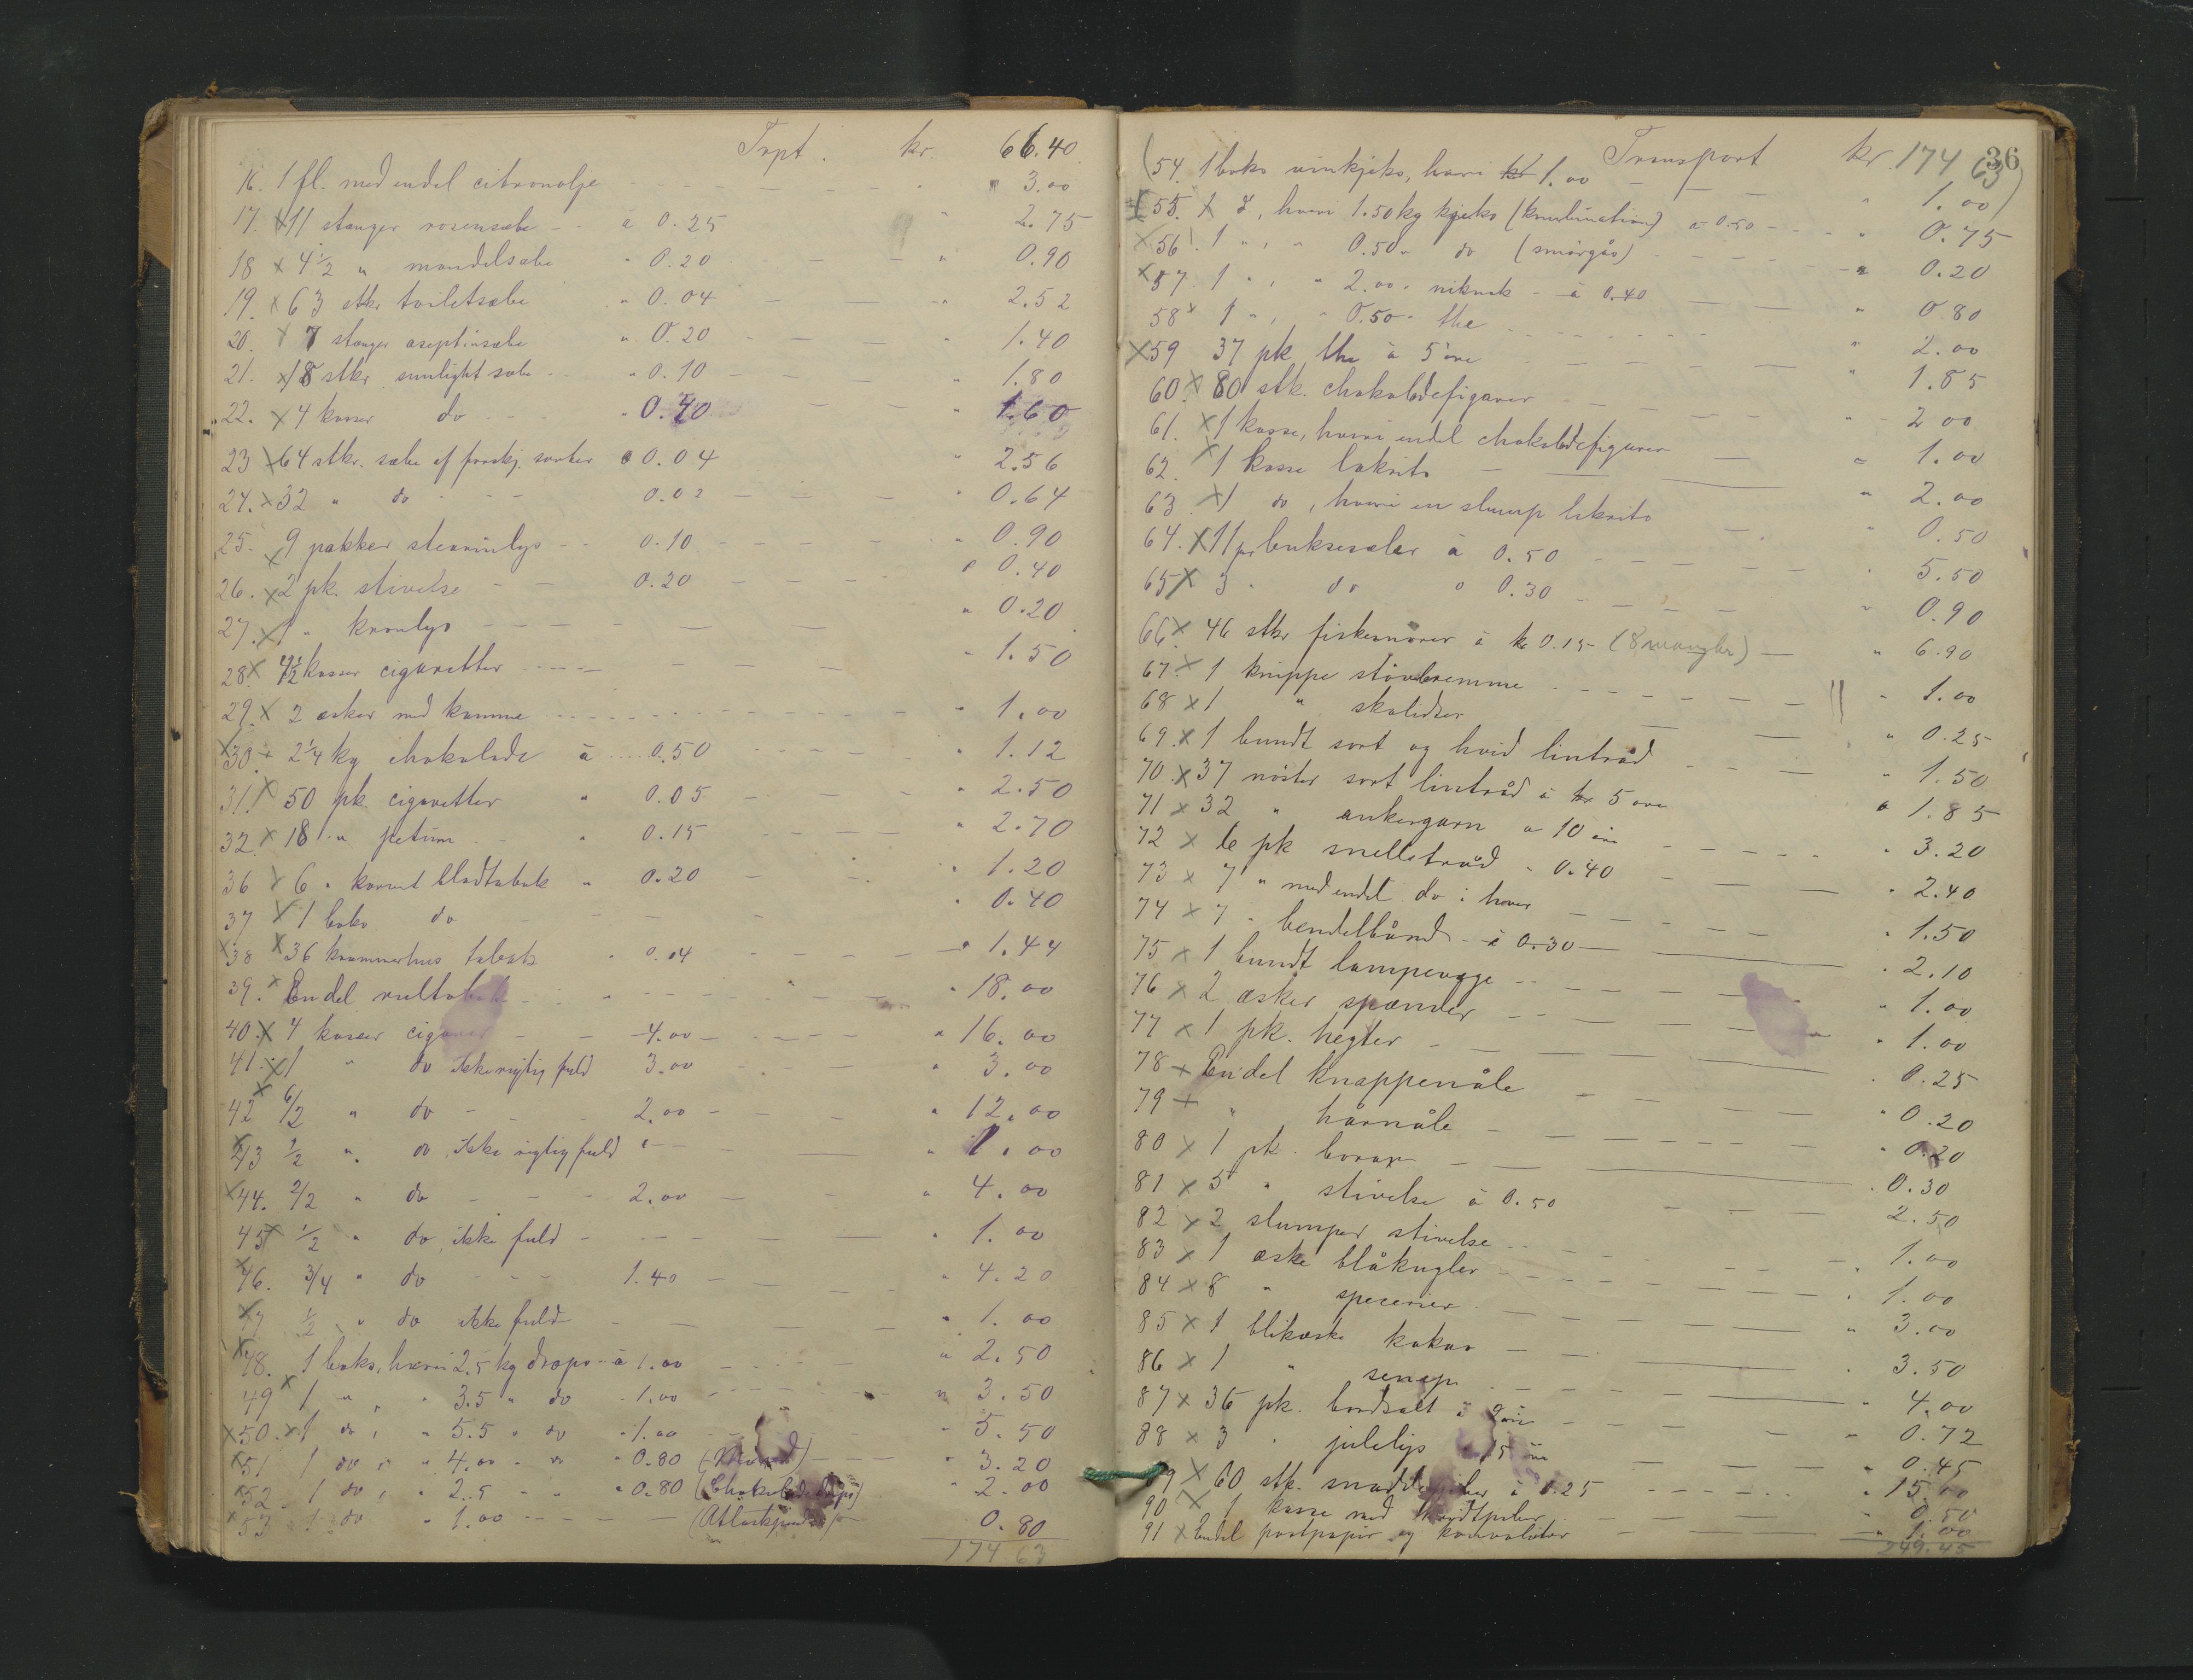 Trpt. kr. 66.40
16. 1 fl. med endel citronolje " 3.00
17. x 11 stanger rosensæbe à 0.25 " 2.75
18 x 4 1/2 " mandelsæbe " 0.20 " 0.90
19. x 63 stkr toiletsæbe " 0.04 " 2.52
20. x 7 stanger aseptinsæbe " 0.20 " 1.40
21. x 18 stkr sunlightsæbe " 0.10 " 1.80
22. x 4 kasser do " 0.40 " 1.60
23 x 64 stkr. sæbe af forskj. sorter à 0.04 " 2.56
24. x 32 " do 0.02 " 0.64
25. x 9 pakker stearinlys 0.10 " 0.90
26. x 2 pk. stivelse 0.20 " 0.40
27. x 1 " kronlys " 0.20
28 x 4 1/2 kasser cigaretter " 1.50
29. x 2 æsker med kamme " 1.00
x 30. 2 1/4 kg chokolade à 0.50 " 1.12
31. x 50 pk. cigaretter " 0.05 " 2.50
32. x 18 " petum " 0.15 " 2.70
36 x 6 " karvet bladtobak " 0.20 " 1.20
37 x 1 boks do " 0.40
x 38 x 36 kræmmerhus tobak " 0.04 " 1.44
39. x Endel rultobak " 18.00
40. x 4 kasser cigarer 4.00 " 16.00
41. x 1 " do ikke rigtig fuld 3.00 " 3.00
42 x 6/2 " do 2.00 " 12.00
x 43 1/2 " do, ikke rigtig fuld " 1.00
x 44. 2/2 " do 2.00 " 4.00
45 x 1/2 " do, ikke fuld " 1.00
x 46. 3/4 " do 1.40 " 4.20
x 47 1/2 " do ikke fuld " 1.00
x 48. 1 boks, hvori 2.5 kg drops à 1.00 " 2.50
49 x 1 " , " 3.5 " do " 1.00 " 3.50
x 50. x 1 do, " 5.5 " do " 1.00 " 5.50
x 51 1 do, " 4.00 " do " 0.80 " 3.20
x 52 1 do, " 2.5 " " " 0.80 (Chokoladedrops) " 2.00
x 53 1 do " 1.00 0.80
174 63
36
Transport kr 174 63
(54. 1 boks vinkjeks, hvori 1.00 " 1.00)
55. x 1 d, hvori 1.50 kg kjeks (kombination) à 0.50 " 0.75
x 56. 1 " , " 0.50 " do (smørgås) " 0.20
x 57. 1 " , " 2.00 " niknak à 0.40 " 0.80
58 x 1 " , " 0.50 " the " 2.00
x 59 37 pk the à 5 øre " 1.85
60. x 80 stk. chokoladefigurer " 2 00
61. x 1 kasse, hvori endel chokoladefigurer " 1.00
62. x 1 kasse lakrits " 2.00
63. x 1 do, hvori en slump lakrits " 0.50
64. x 11 pr buksesæler à 0.50 " 5.50
65 x 3 " do " 0.30 " 0.90
66 x 46 stkr fiskesnører à kr 0.15 (8 mangler) " 6.90
67. x 1 knippe støvleremme " 1.00
68 x 1 " skolidser " 0.25
69. x 1 bundt sort og hvid lintråd " 1.50
70. x 37 nøster sort lintråd à kr 5 øre " 1.85
71 x 32 " ankergarn à 10 øre " 3.20
72 x 6 pk snelletråd " 0.40 " 2.40
73 x 7 " med endel do i hver " 1.50
74 x 7 " bendelbånd à 0.30 " 2.10
75 x 1 bundt lampevæge " 1.00
76 x 2 æsker spænder " 1.00
77 x 1 pk. hegter " 0.25
78 x Endel knappenåle " 0.20
79 x " hårnåle " 0.20
80 x 1 pk. borax " 0.30
81 x 5 " stivelse à 0.50 2.50
82 x 2 slumper stivelse " 1.00
83 x 1 æske blåkugler " 1.00
84 x 8 " specerier " 3.00
85 x 1 blikæske kakao " 3.50
86 x 1 " senep " 4.00
87 x 36 pk. bordsalt à 2 øre " 0.72
88 x 3 " julelys 15 øre " 0.45
89 x 60 stk. à 0.25 " 15.00
90 x 1 kasse med " 0.50
91 x Endel postpapir og konvolutter " 1.00
249.45